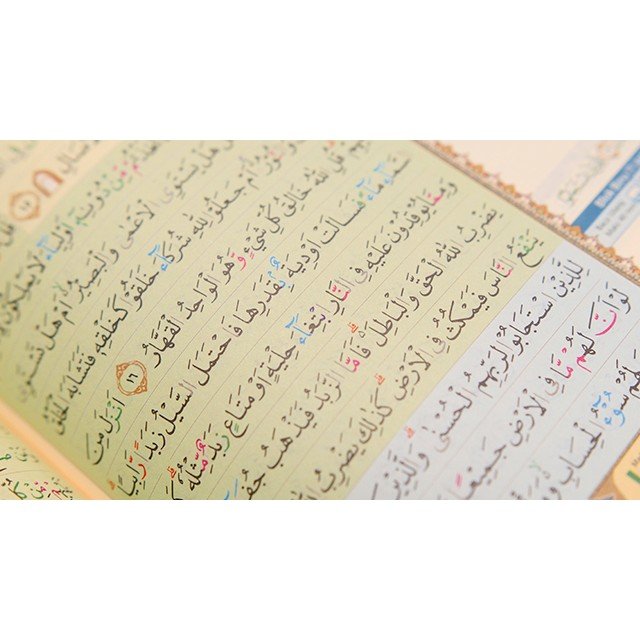 مِّنْ دُوْنِهٖٓ اَوْلِيَاۤءَ لَا يَمْلِكُوْنَ
هَلْ يَسْتَوِى الْاَعْمٰى وَالْبَصِيْرُ اَمْ هَلْ تَسْتَوِى
اَمْ جَعَلُوْا لِلّٰهِ شُرَكَاۤءَ خَلَقُوْا كَخَلْقِهٖ فَتَشَابَهَ الْخَلْقُ
قُلِ اللّٰهُ خَالِقُ كُلِّ شَيْءٍ وَّهُوَ الْوَاحِدُ الْقَهَّارُ ١٦ اَنْزَلَ مِنَ
السَّمَاۤءِ مَاۤءً فَسَالَتْ اَوْدِيَةٌ ۢ بِقَدَرِهَا فَاحْتَمَلَ السَّيْلُ زَبَدًا رَّابِيًا ۗ
وَمِمَّا يُوْقِدُوْنَ عَلَيْهِ فِى النَّارِ ابْتِغَاۤءَ حِلْيَةٍ اَوْ مَتَاعٍ زَبَدٌ مِّثْلُهٗ ۗ
يَضْرِبُ اللّٰهُ الْحَقَّ وَالْبَاطِلَ ەۗ فَاَمَّا الزَّبَدُ فَيَذْهَبُ جُفَاۤءً
يَنْفَعُ النَّاسَ فَيَمْكُثُ فِى الْاَرْضِ ۗ كَذٰلِكَ يَضْرِبُ اللّٰهُ
لِلَّذِيْنَ اسْتَجَابُوْا لِرَبِّهِمُ الْحُسْنٰى ۗ وَالَّذِيْنَ
لَوْ اَنَّ لَهُمْ مَّا فِى الْاَرْضِ جَمِيْعًا
لَهُمْ سُوْۤءُ الْحِسَابِ